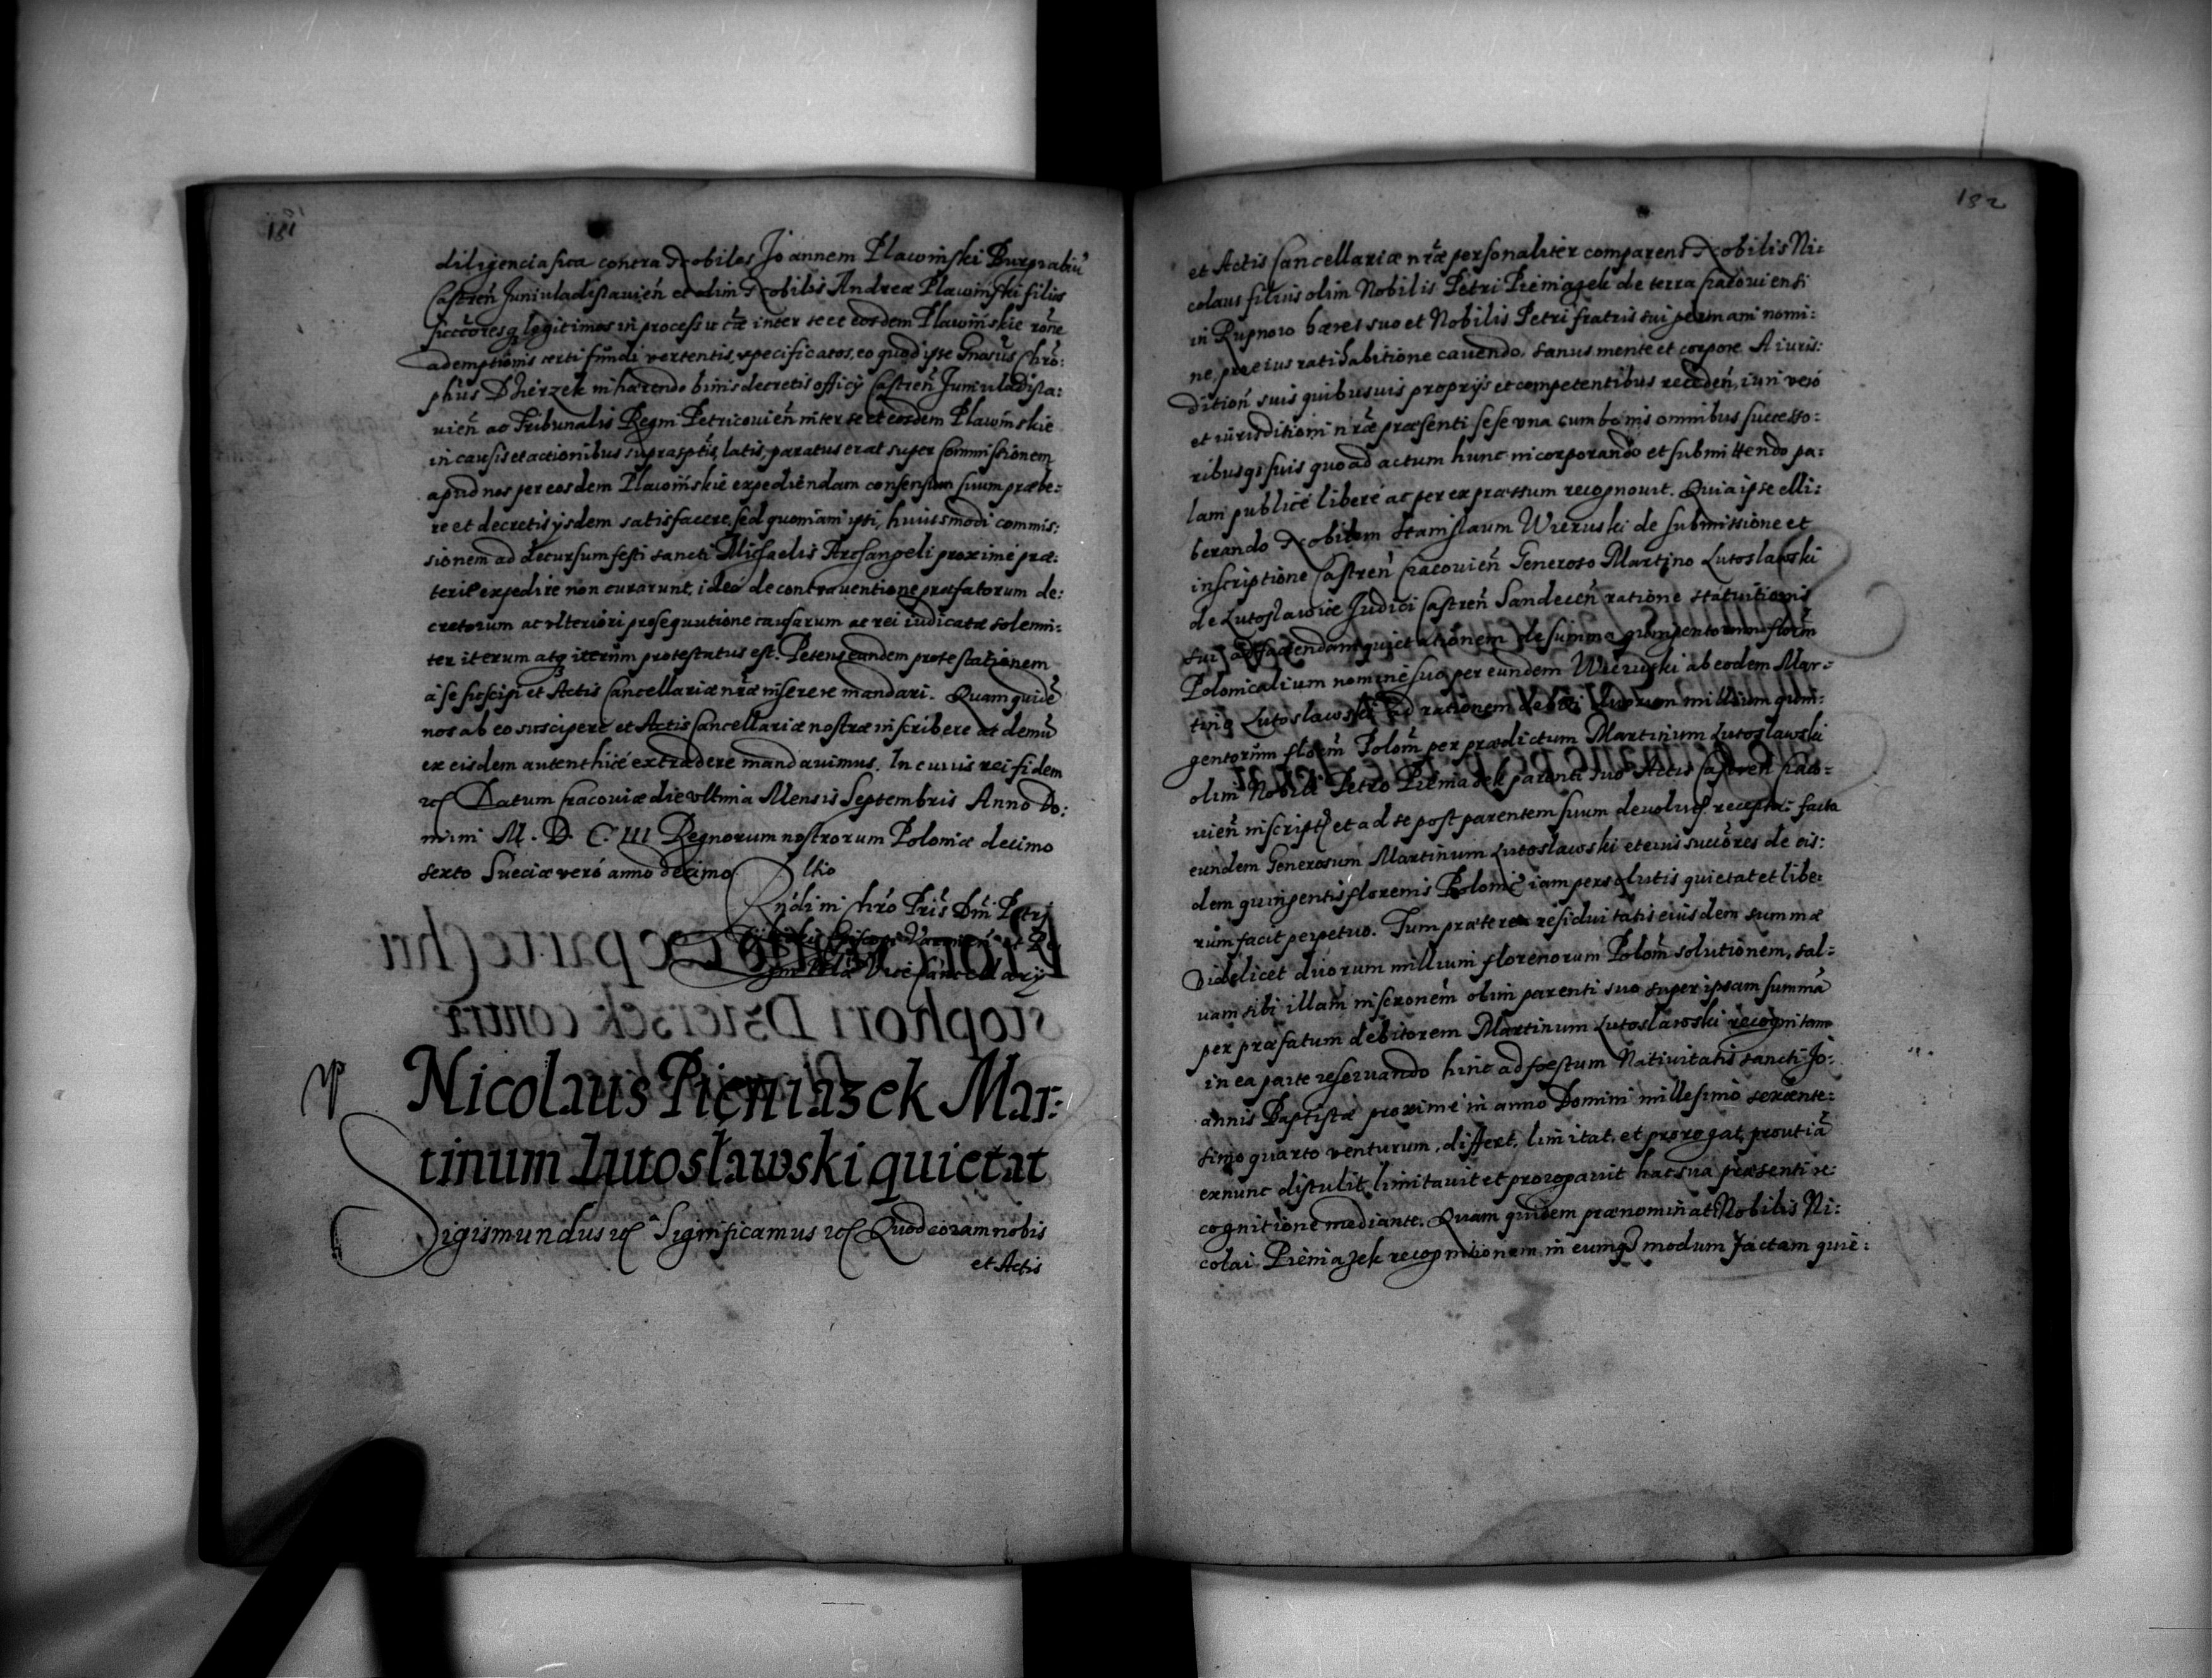 181
diligencia sua contra Nobiles Joannem Plawinski Burgrabiū
Castreñ Juniuladislauieñ et olim Nobilis Andreæ Plawinski filios
legitimos in processu inter se et eosdem Plawinskie
ademptionis certi fundi vertentis, specificatos, eo quod ipse Gnosus Chro:
phūs Dzierzek inhærendo binis decretis officÿ Castreñ Juniuladisla:
uieñ ac Tribunalis Regni Petricouieñ inter se et eosdem Plawinskie
in causis et actionibus suprasptis, latis, paratus erat super Commissionem
apud nos per eosdem Plawinskie expediendam consensum suum præbe:
re et decretis ÿsdem satisfacere, sed quoniam ipsi, huiusmodi commis:
sionem ad decursum festi sancti Michaelis Archangeli proximè præ:
teriti expedire non curarunt, ideo de contrauentione præfatorum de:
cretorum ac vlteriori prosequutione causarum ac rei iudicatæ solenni:
ter iterum atq iterum protestatus est. Petens eandem protestationem
à se suscipi et Actis Cancellariæ nræ inserere mandari. Quam quidē
nos ab eo suscipere et Actis Cancellariæ nostræ inscribere ac demū
ex eisdem autenthicè extradere mandauimus. In cuius rei fidem
Datum Cracouiæ die vltima Mensis Septembris Anno Do:
mini M. D. C. III Regnorum nostrorum Poloniæ decimo
sexto Sueciæ veró anno decimo.
Rndi in Chrō Pris Dni Petri
Vice Cancellarÿ
Nicolaus Pieniazek Mar:
tinum Lutosławski quietat
Sigismundus Significamus Quod coram nobis
et Actis
182
et Actis Cancellariæ nræ personaliter comparens Nobilis Ni:
colaus filius olim Nobilis Petri Pieniązek de terra Cracouiensi
in Rupnow hæres suo et Nobilis Petri fratris sui germani nomi:
ne, pro eius ratihabitione cauendo, sanus mente et corpore A iuris:
ditioñ suis quibusuis proprÿs et competentibus recedeñ, iuri veró
et iurisditioni nræ præsenti sese vna cum bonis omnibus successo:
ribusq suis quoad actum hunc incorporando et submittendo pa:
lam publicè liberè ac per expressum recognouit. Quia ipse elli:
berando Nobilem Stanislaum Wieruski de submissione et
inscriptione Castreñ Cracouieñ Generoso Martino Lutoslawski
de Lutoslawice Judici Castreñ Sandeceñ ratione statuitionis
sui ad faciendam quietationem de summa quingentorum floreñ
Polonicalium nomine suo per eundem Wieruski ab eodem Mar:
tino Lutoslawski ad rationem debiti duorum millium quin:
gentorum floreñ Poloñ per prædictum Martinum Lutoslawski
olim Nobili Petro Pieniazek parenti suo Actis Castreñ Craco:
uieñ inscript et ad se post parentem suum deuolut recepta: facta
eundem Generosum Martinum Lutoslawski et eius succōres de eis:
dem quingentis florenis Polonic iam persolutis quietat et libe:
rum facit perpetuo. Tum præterea residuitatis eiusdem summæ
Videlicet duorum millium florenorum Poloñ solutionem, sal:
uam sibi illam inscronem olim parenti suo super ipsam summā
per præfatum debitorem Martinum Lutoslawski recognitam
in ea parte reseruando hinc ad foestum Natiuitatis sancti Jo:
annis Baptistæ proximè in anno Domini millesimo sexcente:
simo quarto venturum, differt, limitat, et prorogat, prout iā
exnunc distulit, limitauit et prorogauit hac sua præsenti re:
cognitione mediante. Quam quidem prænominat Nobilis Ni:
colai Pieniazek recognitionem in eumq modum factam quie: